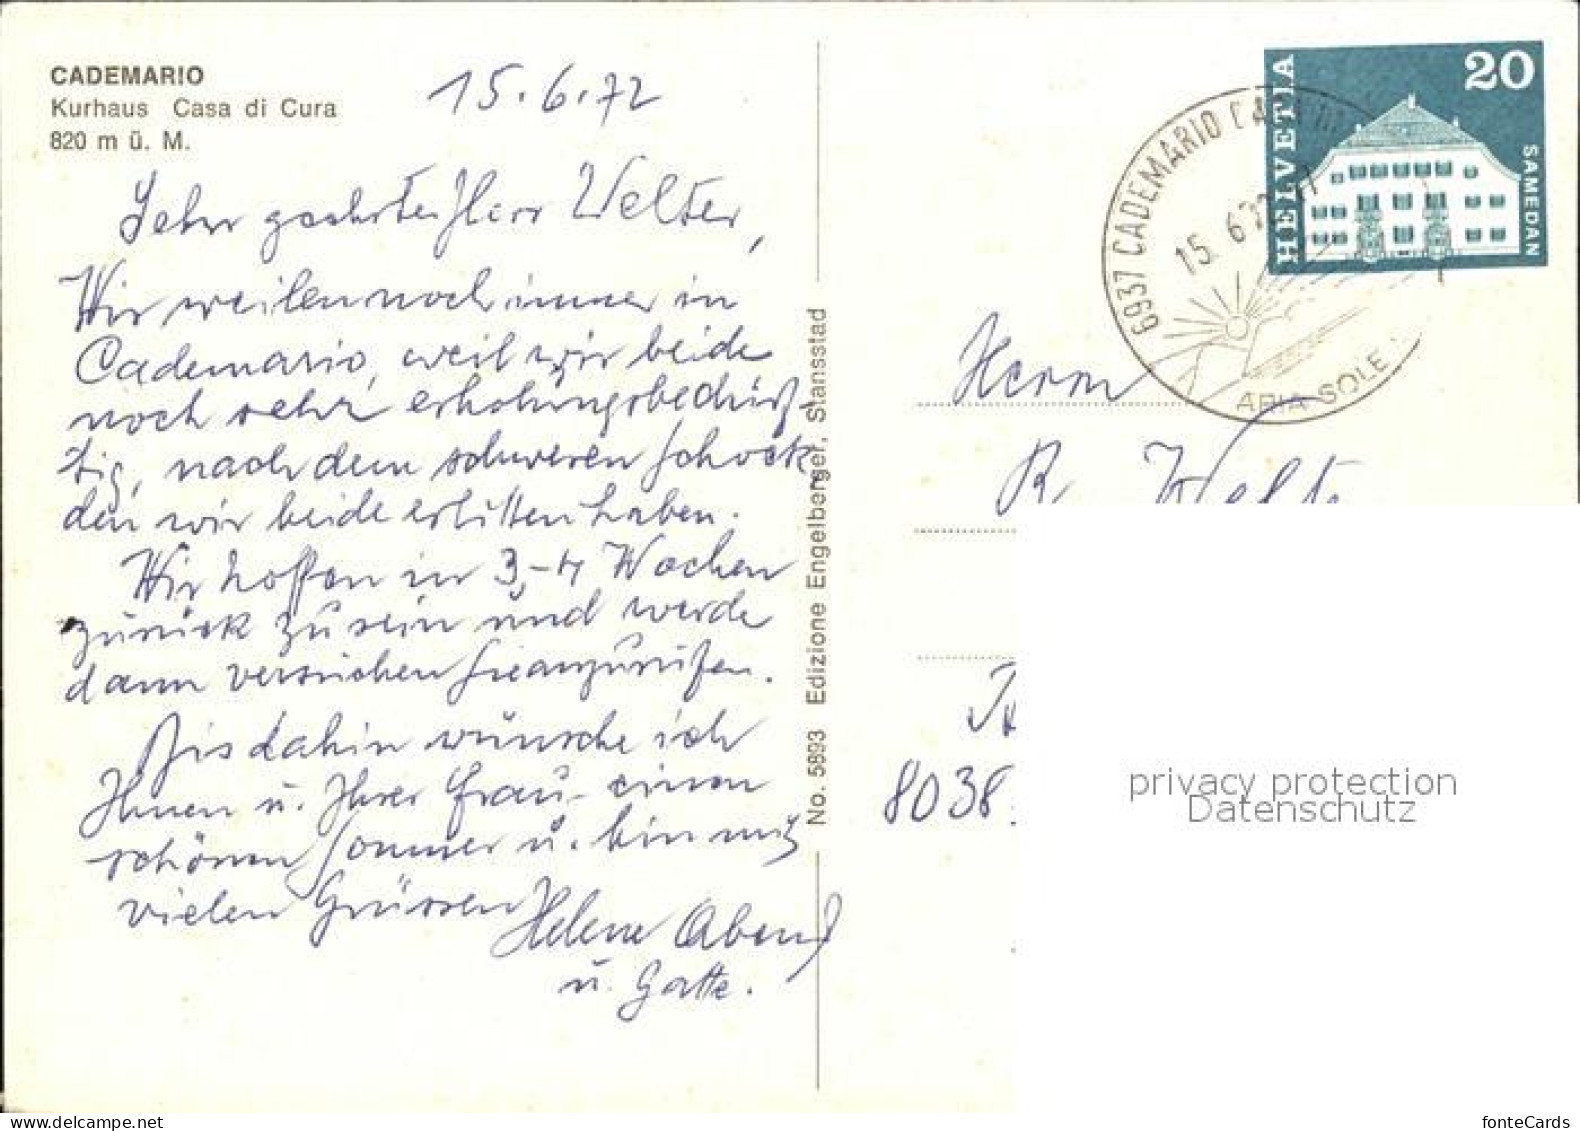 CADEMARIO
Kurhaus Casa di Cura
820 m ü. M.
15.6.72
Sehr geehrter Herr Welter,
Wir weilen noch immer in
Cademario, weil wir beide
noch sehr erholungsbedürf-
tig, nach dem schweren Schock
den wir beide erlitten haben.
Wir hoffen in 3-4 Wochen
zurück zu sein und werde
dann versuchen Sie anzurufen.
Bis dahin wünsche ich
Ihnen u. Ihrer Frau einen
schönen Sommer u. bin mit
vielen Grüssen
Helene
u. Gatte.
No. 5893 Edizione Engelberger, Stansstad
HELVETIA
20
SAMEDAN
6937 CADEMARIO
15.6.72
ARIA SOLE
Herrn
R. Welte
8038
privacy protection
Datenschutz
fonteCards